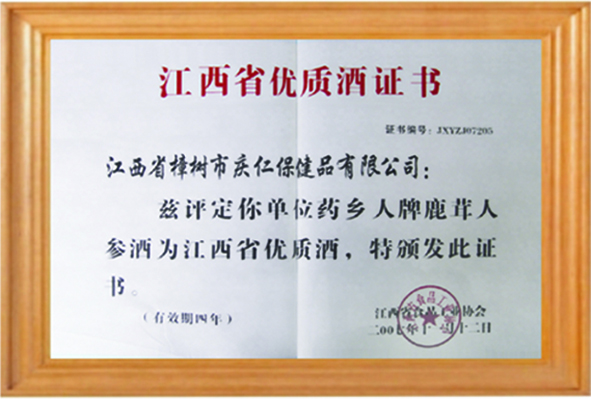 江西省优质酒证书
证书编号：JXYZJ07205
江西省樟树市庆仁保健品有限公司：
兹评定你单位药乡人牌鹿茸人
参酒为江西省优质酒，特颁发此证
书。
（有效期四年）
江西省食品工业协会
二00七年十一月十二日